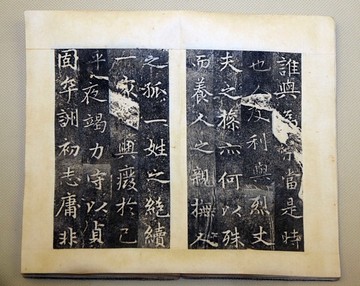 誰與當是時
也及利與烈丈
夫之操亦何以殊
而養人之親撫人
之孤一姓之絕續
一家興廢於己
夜竭力守以貞
固卒訓初志庸非